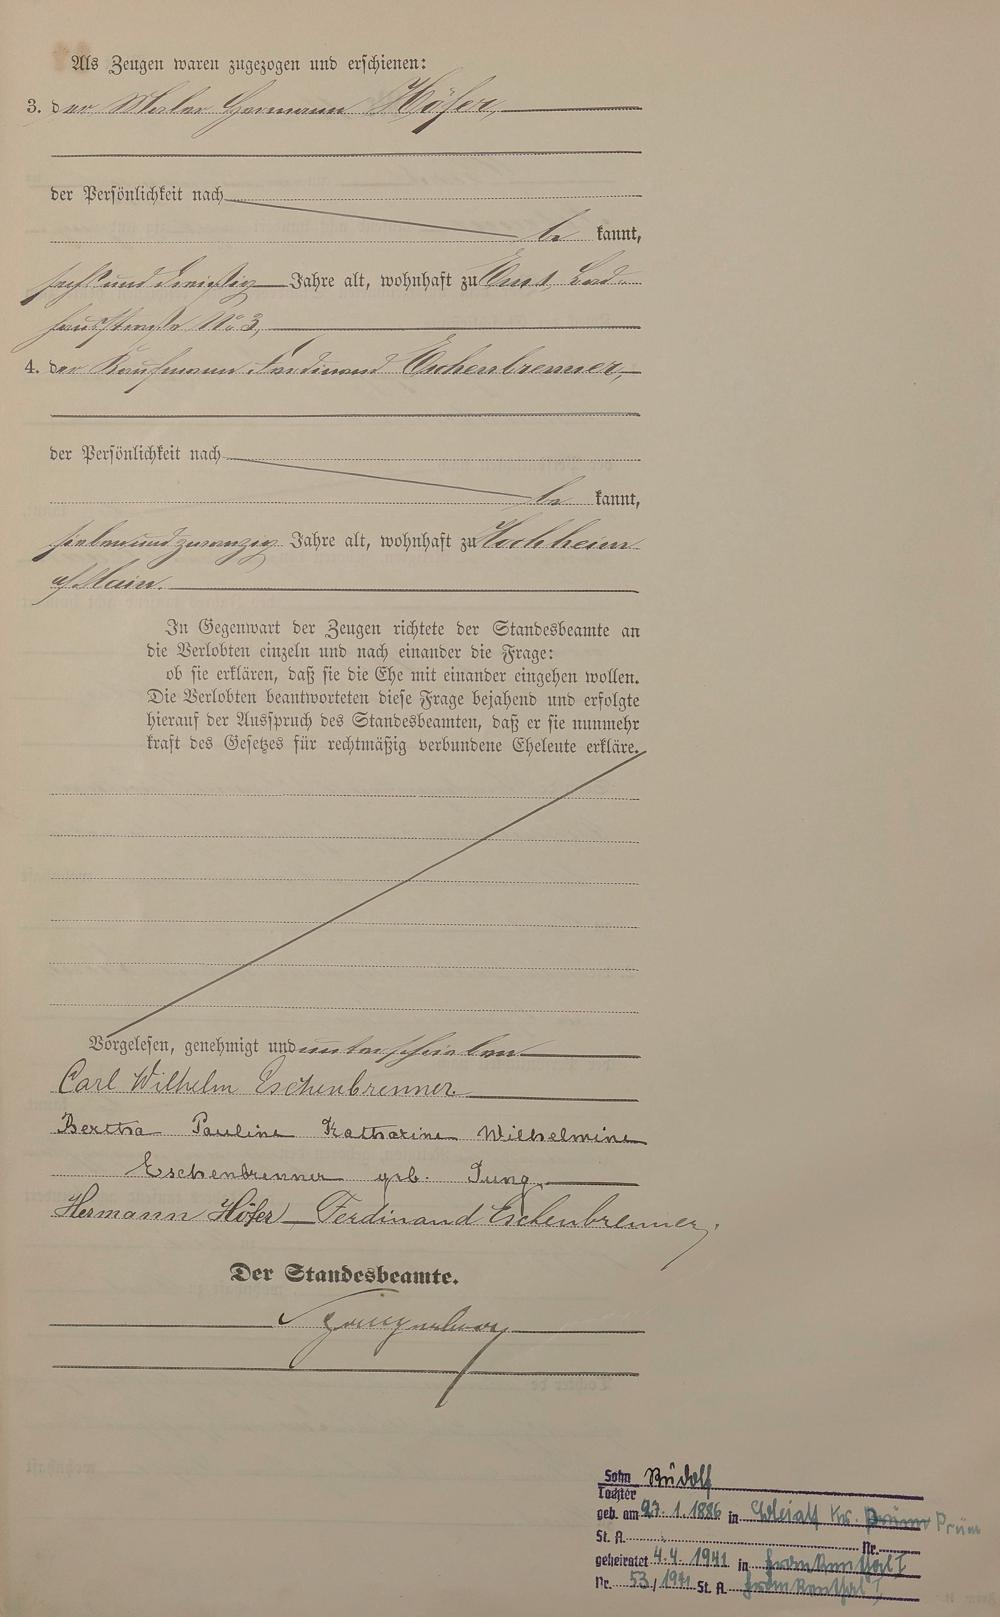 Als Zeugen waren zugezogen und erschienen:
3. der Maler Hermann Höfer,
der Persönlichkeit nach
be kannt,
sechsunddreißig Jahre alt, wohnhaft zu Ems, Bad-
hausstraße No 3,
4. der Kaufmann Ferdinand Eschenbrenner,
der Persönlichkeit nach
be kannt,
siebenundzwanzig Jahre alt, wohnhaft zu Hochheim
a/Main.
In Gegenwart der Zeugen richtete der Standesbeamte an
die Verlobten einzeln und nach einander die Frage:
ob sie erklären, daß sie die Ehe mit einander eingehen wollen.
Die Verlobten beantworteten diese Frage bejahend und erfolgte
hierauf der Ausspruch des Standesbeamten, daß er sie nunmehr
kraft des Gesetzes für rechtmäßig verbundene Eheleute erkläre.
Vorgelesen, genehmigt und unterschrieben
Carl Wilhelm Eschenbrenner
Bertha Pauline Katharine Wilhelmine
Eschenbrenner geb. Jung.
Hermann Höfer Ferdinand Eschenbrenner.
Der Standesbeamte.
Sohn Rudolf
Tochter
geb. am 27.1.1886 in Bleialf Kr. Prüm Prüm
St. A. Nr.
geheiratet 4.4.1941 in Frankenthal I
Nr. 53/1941 St. A. Frankenthal I